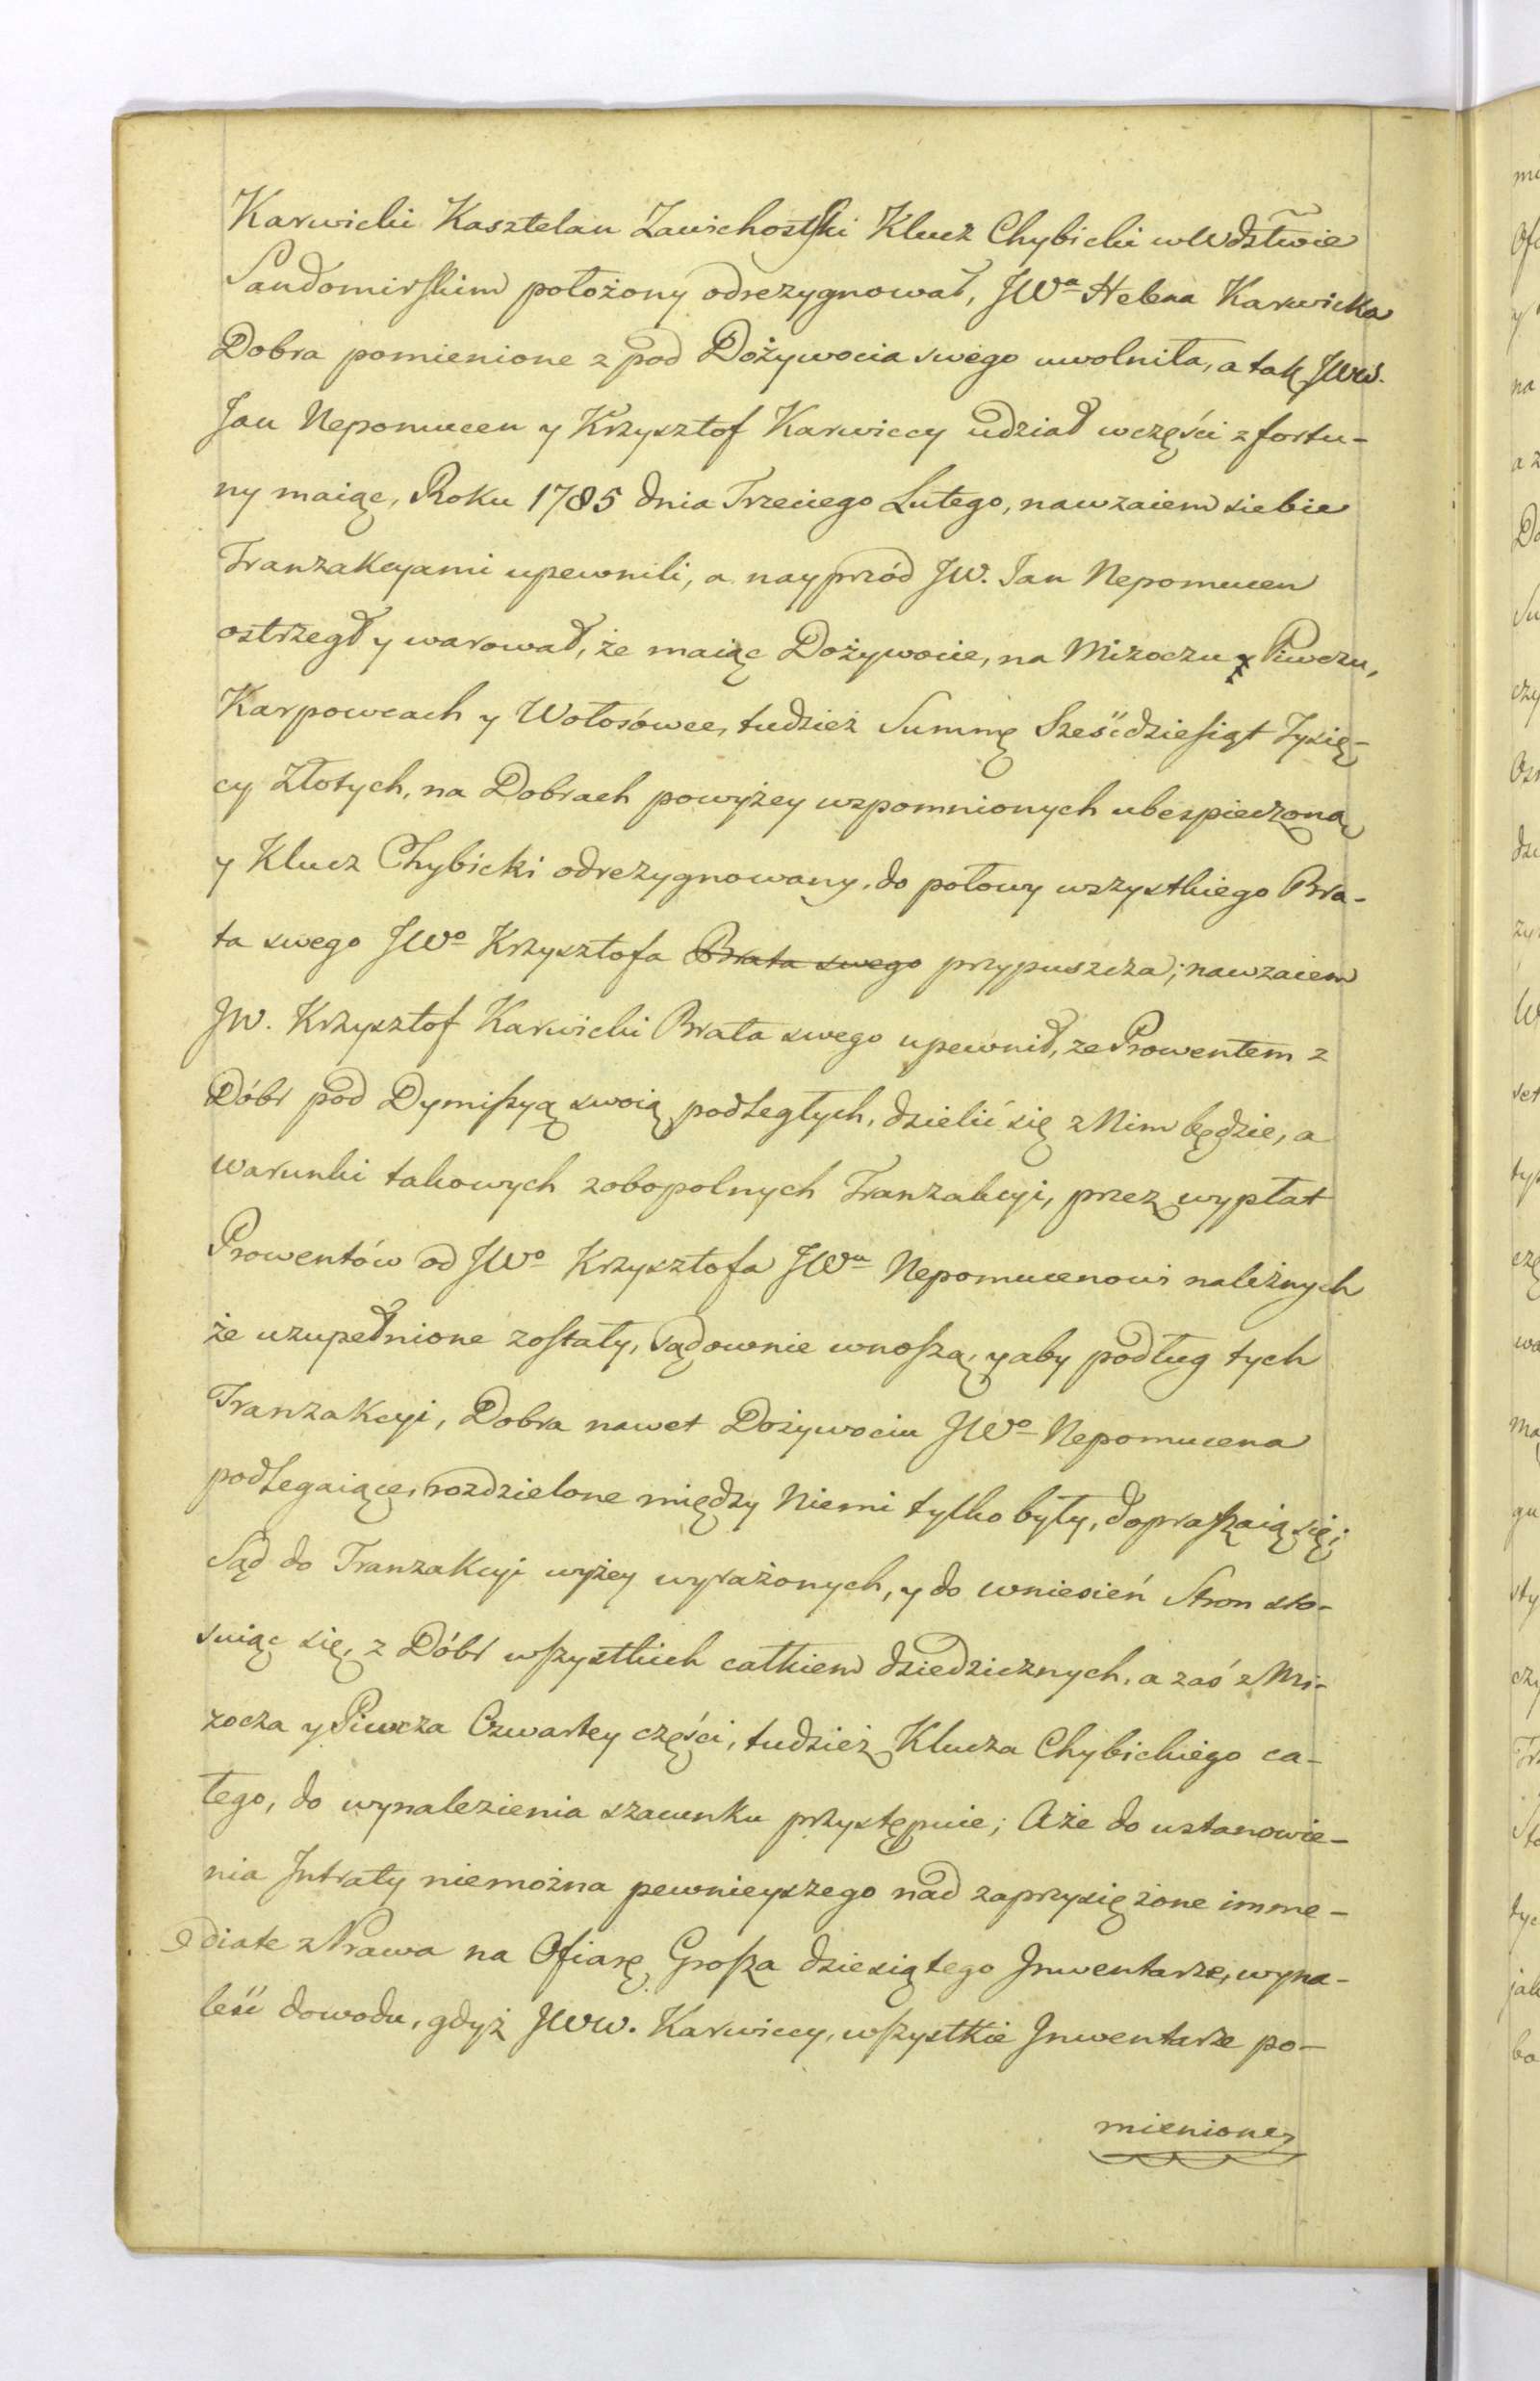 Karwicki Kasztelan Zawichostski Klucz Chybicki w Wdztwie
Sandomirskim położony odrezygnował, JWa Helena Karwicka
Dobra pomienione z pod Dożywocia swego uwolniła, a tak JWW.
Jan Nepomucen y Krzysztof Karwiccy udział w części z fortu-
ny maiąc, Roku 1785 dnia Trzeciego Lutego, nawzaiem siebie
Tranzakcyami upewnili, a nayprzód JW. Jan Nepomucen
ostrzegł y warował, że maiąc Dożywocie, na Mizoczu y Piwczu,
Karpowcach y Wołosówce, tudzież Summę Sześćdziesiąt Tysię-
cy Złotych, na Dobrach powyżey wspomnionych ubespieczoną
y Klucz Chybicki odrezygnowany, do połowy wszystkiego Bra-
ta swego JWo Krzysztofa Brata swego przypuszcza; nawzaiem
JW. Krzysztof Karwicki Brata swego upewnił, ze Prowentem z
Dóbr pod Dymissyą swoią podległych, dzielić się z Nim będzie, a
warunki takowych zobopolnych Tranzakcyi, przez wypłat
Prowentów od JWo Krzysztofa JWu Nepomucenowi należnych
że uzupełnione zostały, sądownie wnoszą, y aby podług tych
Tranzakcyi, Dobra nawet Dożywociu JWo Nepomucena
podlegaiące, rozdzielone między Niemi tylko były, dopraszaią się;
Sąd do Tranzakcyi wyżey wyrażonych, y do wniesień Stron sto-
suiąc się, z Dóbr wszystkich całkiem dziedzicznych, a zaś z Mi-
zocza y Piwcza Czwartey części, tudzież Klucza Chybickiego ca-
łego, do wynalezienia szacunku przystępuie; A że do ustanowie-
nia Jntraty niemożna pewnieyszego nad zaprzysiężone imme-
diate z Prawa na Ofiarę Grosza dziesiątego Jnwentarze, wyna-
leść dowodu, gdyż JWW. Karwiccy, wszystkie Jnwentarze po-
mienione